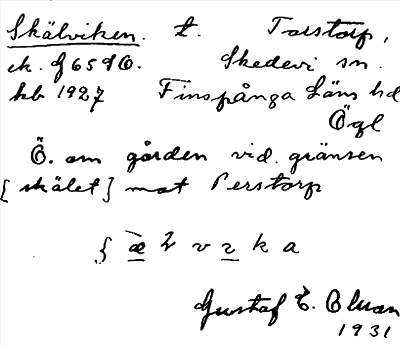 Skälviken. t. Torstorp,
ek. J6590. Skedevi sn.
hb 1927 Finspånga Läns hd
Ögl
Ö. om gården vid gränsen
[skälet] mot Perstorp
Gustaf E. Olson
1931